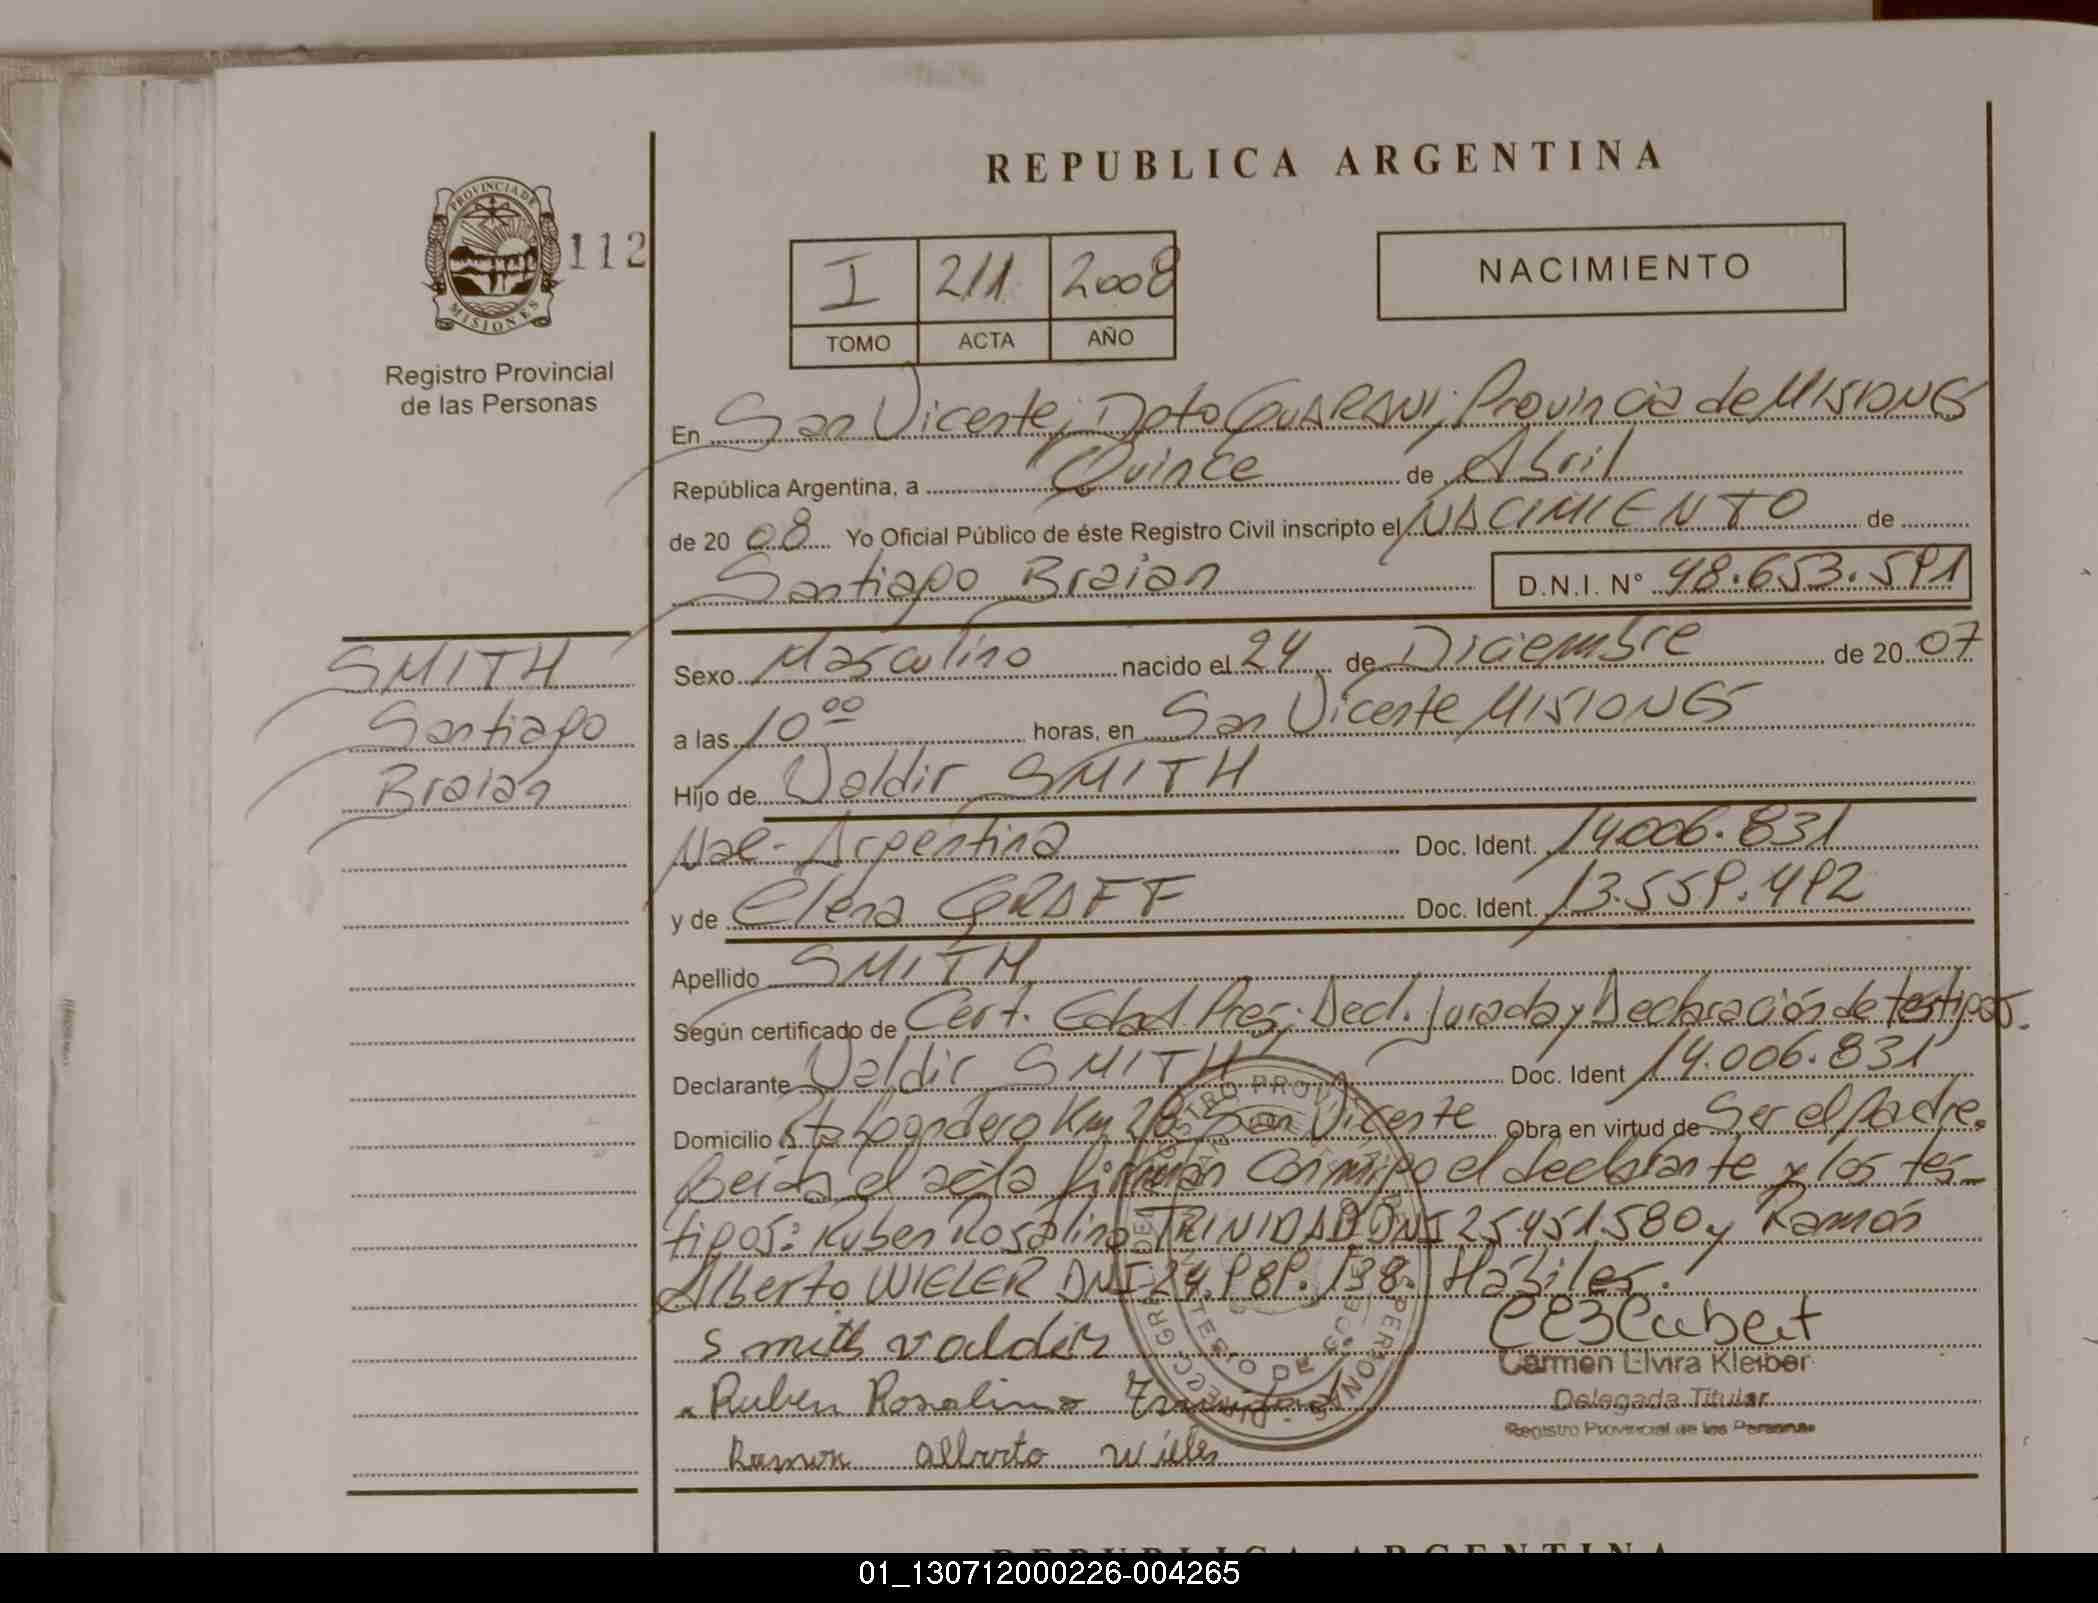 REPUBLICA ARGENTINA
PROVINCIA DE
MISIONES
112
Registro Provincial
de las Personas
I 211 2008
TOMO ACTA AÑO
NACIMIENTO
En San Vicente, Dpto GUARANI, Provincia de MISIONES
República Argentina, a Quince de Abril
de 2008 Yo Oficial Público de éste Registro Civil inscripto el NACIMIENTO de
Santiago Braian D.N.I. N° 48.653.591
SMITH
Santiago
Braian
Sexo Masculino nacido el 24 de Diciembre de 2007
a las 10 00 horas, en San Vicente MISIONES
Hijo de Valdir SMITH
Nac. Argentina Doc. Ident. 14.006.831
y de Elena GRAFF Doc. Ident. 13.559.492
Apellido SMITH
Según certificado de Cert. Edad Pres. Decl. Jurada y Declaración de testigos.
Declarante Valdir SMITH Doc. Ident 14.006.831
Domicilio Km San Vicente Obra en virtud de Ser el Padre.
Leida el acta firman conmigo el declarante y los tes-
tigos: Ruben Rosalino TRINIDAD DNI 25.451.580 y Ramón
Alberto WIELER DNI 24.989.138. Hábiles.
Smith valdir
Ruben Rosalino Trinidad
Ramon Alberto
Carmen Elvira Kleiber
Delegada Titular
Registro Provincial de las Personas
REPUBLICA ARGENTINA
01_130712000226-004265